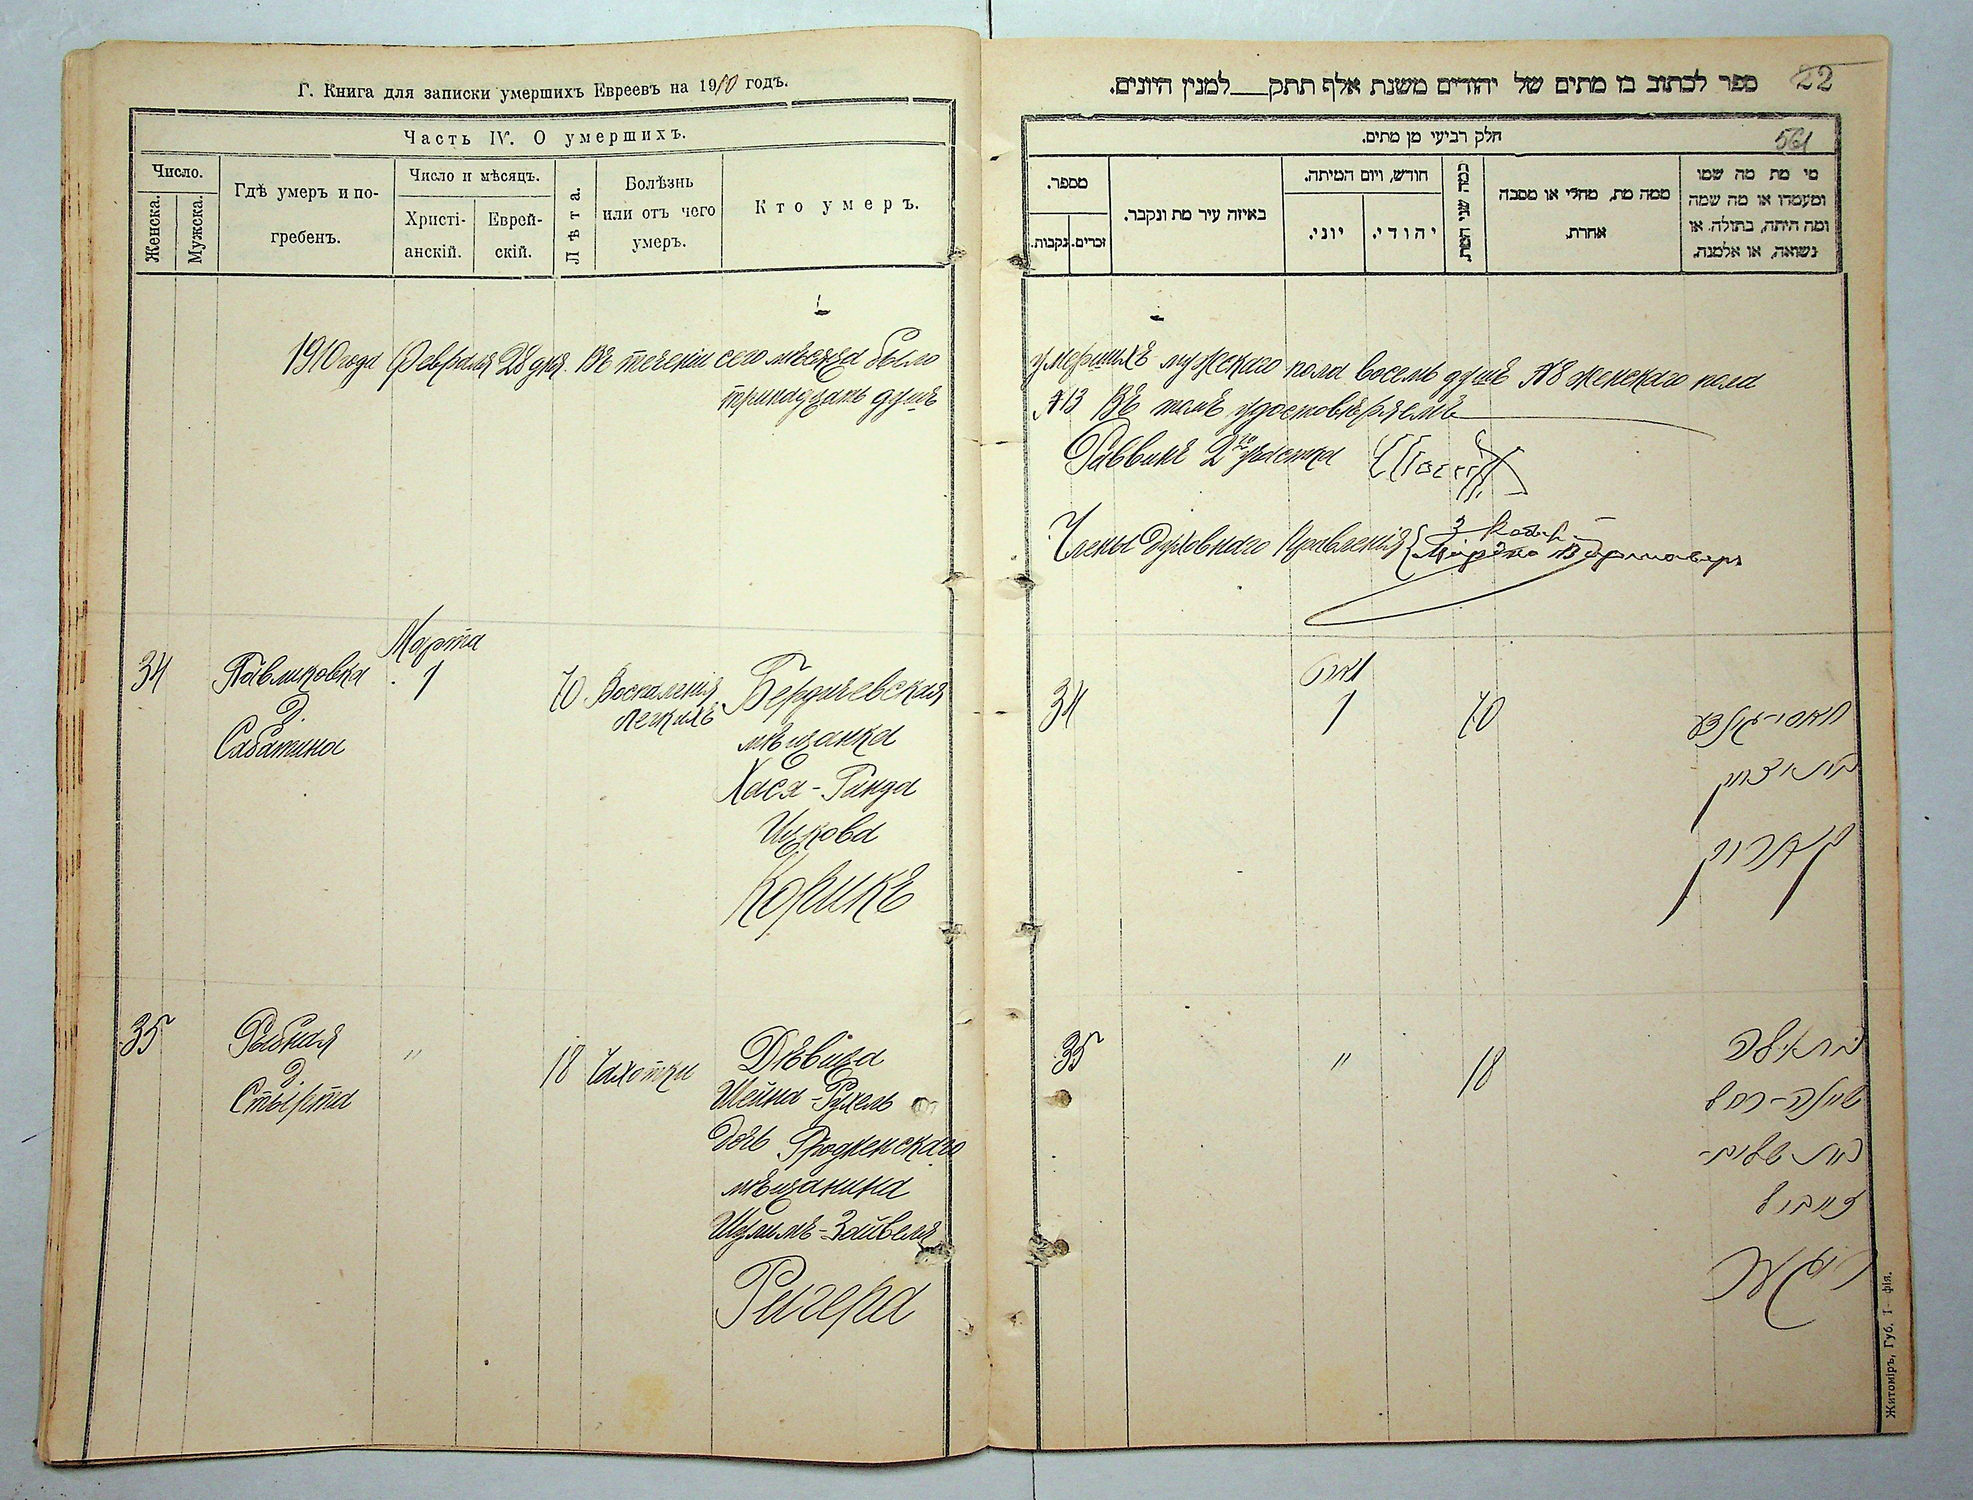 Г. Книга для записки умершихъ Евреевъ на 1910 годъ.
Часть IV. О умершихъ.
Число.
Женска.
Мужска.
Гдѣ умеръ и по-
гребенъ.
Число и мѣсяцъ.
Христі-
анскій.
Еврей-
скій.
Лѣта.
Болѣзнь
или отъ чего
умеръ.
Кто умеръ.
1910 года Февраля 28 дня. Въ теченіи сего мѣсяца было
тринадцать душъ
34
Павликовка
д.
Сабатина
Марта
1
70
Воспаленія
легкихъ
Бердичевская
мѣщанка
Хася-Гинда
Ицкова
Корикъ
35
Рыбная
д.
Стырта
"
18
Чахотки
Дѣвица
Шейна-Рухель
дочь Гродненскаго
мѣщанина
Шулимъ-Зайвеля
Ригера
ספר לכתוב בו מתים של יהודים משנת אלף תתק למנין היונים.
22
חלק רביעי מן מתים.
561
מספר.
נקבות.
זכרים.
באיזה עיר מת ונקבר.
חודש, ויום המיתה.
יוני.
יהודי.
כמה שני המת.
ממה מת, מחלי או מסבה
אחרת.
מי מת מה שמו
ומעמדו או מה שמה
ומה היתה, בתולה, או
נשואה, או אלמנה.
умершихъ мужскаго пола восемь душъ №8 женскаго пола
№13 Въ томъ удостовѣряемъ
Раввинъ 2го участка
Члены Духовнаго Правленія
34
1
70
35
"
18
בתולה
שיינה-רחל
בת שלום-
זייבל
Житоміръ, Губ. Т-фія.